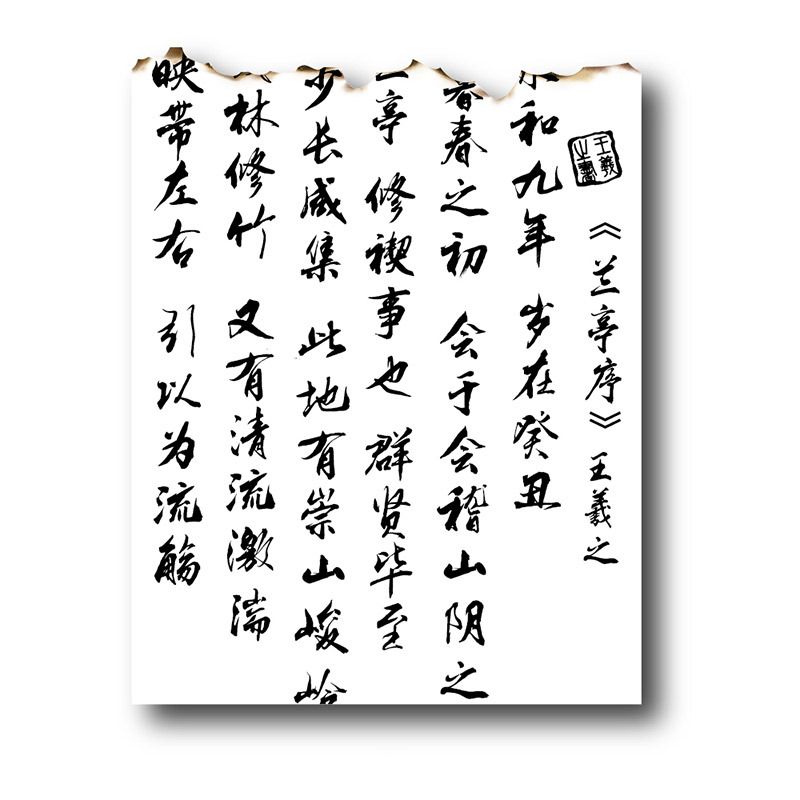 王羲之書
《兰亭序》王羲之
永和九年 岁在癸丑
暮春之初 会于会稽山阴之
兰亭 修禊事也 群贤毕至
少长咸集 此地有崇山峻岭
林修竹 又有清流激湍
映带左右 引以为流觞